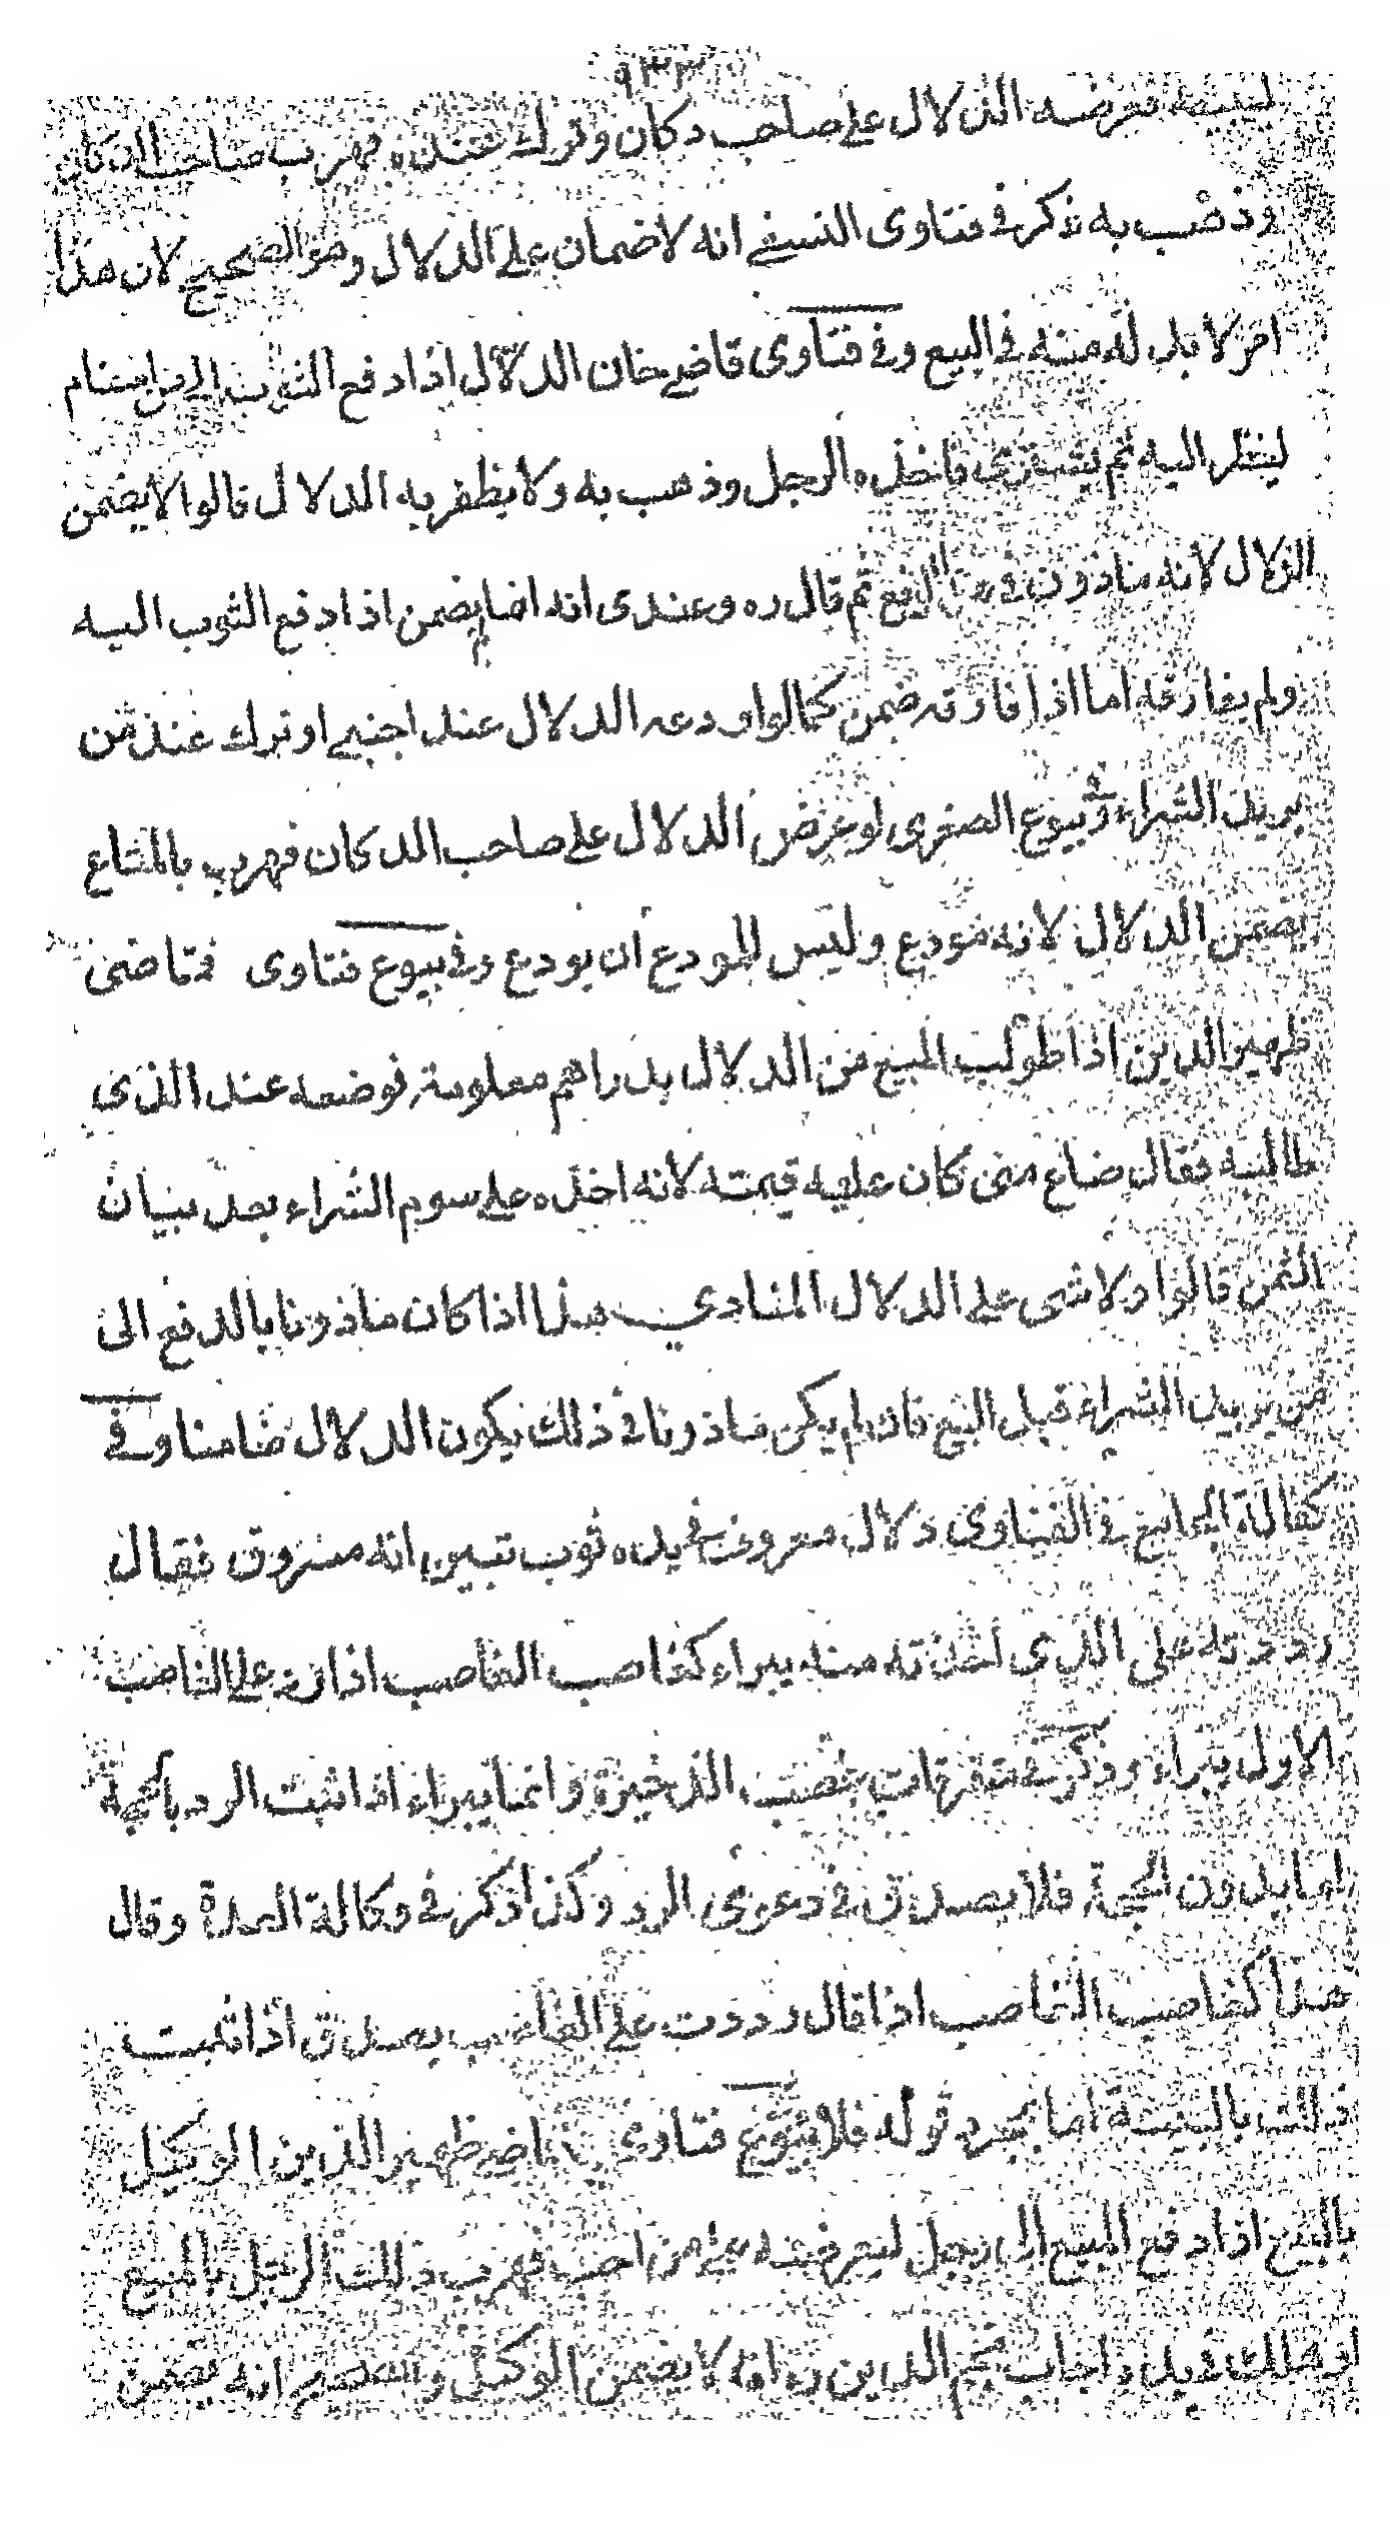 ٩٣٣
لبيعه فعرضه الدلال على صاحب دكان وترك عنده فهرب صاحب الدكان
وذهب به ذكر في فتاوى النسفي انه لا ضمان على الدلال وهو الصحيح لان هذا
امر لا بد له منه في البيع وفي فتاوى قاضي خان الدلال اذا دفع الثوب الى من استام
لينظر اليه ثم يشتري فاخذه الرجل وذهب به ولا يظفر به الدلال قالوا لا يضمن
الدلال لانه ماذون في هذا الدفع ثم قال ره وعندى انه انما لم يضمن اذا دفع الثوب اليه
ولم يفارقه اما اذا فارقه ضمن كما لو اودعه الدلال عند اجنبي او ترك عند من
يريد الشراء وفي بيوع الصغرى لو عرض الدلال على صاحب الدكان فهرب بالمتاع
يضمن الدلال لانه مودع وليس للمودع ان يودع وفي بيوع فتاوى قاضى
ظهير الدين اذا طولب المبيع من الدلال بدراهم معلومة فوضعه عند الذى
طالبه فقال ضاع منى كان عليه قيمته لانه اخذه على سوم الشراء بعد بيان
الثمن قالوا ولا شى على الدلال المنادي هذا اذا كان ماذونا بالدفع الى
من يريد الشراء قبل البيع فان لم يكن ماذونا في ذلك يكون الدلال ضامنا وفي
كفالة الجامع في الفتاوى دلال معروف في يده ثوب تبين انه مسروق فقال
رددته على الذى اخذته منه يبراء كغاصب الغاصب اذا رد على الغاصب
الاول يبراء وذكر في متفرقات غصب الذخيرة وانما يبراء اذا ثبت الرد بالحجة
اما بدون الحجة فلا يصدق في دعوى الرد وكذا ذكر في وكالة العدة وقال
هذا كغاصب الغاصب اذا قال رددت على الغاصب يصدق اذا ثبت
ذلك بالبينة اما بمجرد قوله فلا بيوع فتاوى قاضي ظهير الدين الوكيل
بالبيع اذا دفع المبيع الى رجل ليعرضه على من احب فهرب ذلك الرجل بالمبيع
او هلك في يده اجاب نجم الدين ره انه لا يضمن الوكيل والصحيح انه يضمن